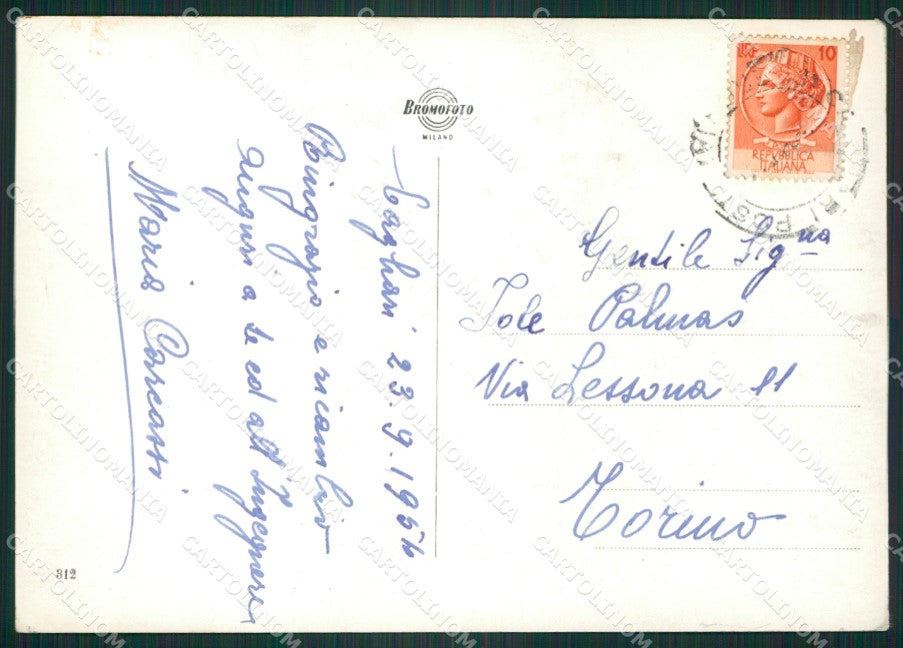 BROMOFOTO
MILANO
LIRE 10
REPVBBLICA
ITALIANA
Cagliari 23.9.1954
Ringrazio e ricambio
auguri a te ed all'Ingegnere
Maria Carcassi
Gentile Sig.na
Iole Palmas
Via Lessona 11
Torino
312
CARTOLINOMANIA